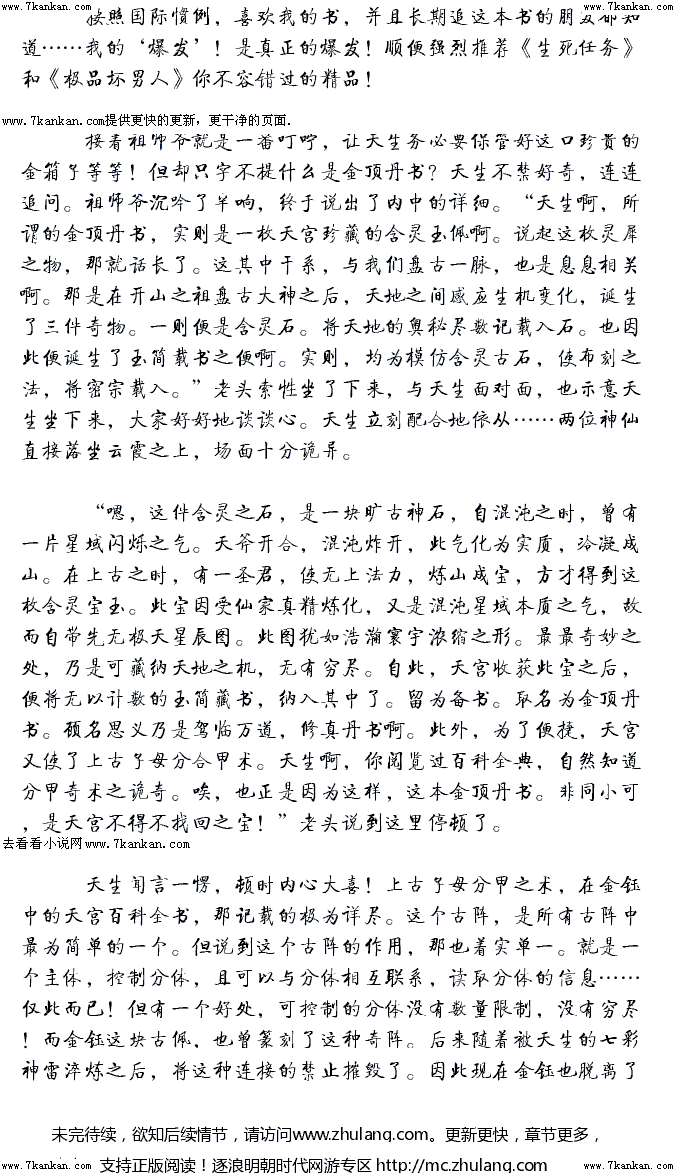 www.7kankan.com
www.7kankan.com
按照国际惯例，喜欢我的书，并且长期追这本书的朋友都知
道……我的‘爆发’！是真正的爆发！顺便强烈推荐《生死任务》
和《极品坏男人》你不容错过的精品！
www.7kankan.com提供更快的更新，更干净的页面.
接着祖师爷就是一番叮咛，让天生务必要保管好这口珍贵的
金箱子等等！但却只字不提什么是金顶丹书？天生不禁好奇，连连
追问。祖师爷沉吟了半响，终于说出了内中的详细。“天生啊，所
谓的金顶丹书，实则是一枚天宫珍藏的含灵玉佩啊。说起这枚灵犀
之物，那就话长了。这其中干系，与我们盘古一脉，也是息息相关
啊。那是在开山之祖盘古大神之后，天地之间感应生机变化，诞生
了三件奇物。一则便是含灵石。将天地的奥秘尽数记载入石。也因
此便诞生了玉简载书之便啊。实则，均为模仿含灵古石，使布刻之
法，将密宗载入。”老头索性坐了下来，与天生面对面，也示意天
生坐下来，大家好好地谈谈心。天生立刻配合地依从……两位神仙
直接落坐云霞之上，场面十分诡异。
“嗯，这件含灵之石，是一块旷古神石，自混沌之时，曾有
一片星域闪烁之气。天斧开合，混沌炸开，此气化为实质，冷凝成
山。在上古之时，有一圣君，使无上法力，炼山成宝，方才得到这
枚含灵宝玉。此宝因受仙家真精炼化，又是混沌星域本质之气，故
而自带先无极天星辰图。此图犹如浩瀚寰宇浓缩之形。最最奇妙之
处，乃是可藏纳天地之机，无有穷尽。自此，天宫收获此宝之后，
便将无以计数的玉简藏书，纳入其中了。留为备书。取名为金顶丹
书。顾名思义乃是驾临万道，修真丹书啊。此外，为了便捷，天宫
又使了上古子母分合甲术。天生啊，你阅览过百科全典，自然知道
分甲奇术之诡奇。唉，也正是因为这样，这本金顶丹书。非同小可
，是天宫不得不找回之宝！”老头说到这里停顿了。
去看看小说网www.7kankan.com
天生闻言一愣，顿时内心大喜！上古子母分甲之术，在金钰
中的天宫百科全书，那记载的极为详尽。这个古阵，是所有古阵中
最为简单的一个。但说到这个古阵的作用，那也着实单一。就是一
个主体，控制分体，且可以与分体相互联系，读取分体的信息……
仅此而已！但有一个好处，可控制的分体没有数量限制，没有穷尽
！而金钰这块古佩，也曾篆刻了这种奇阵。后来随着被天生的七彩
神雷淬炼之后，将这种连接的禁止摧毁了。因此现在金钰也脱离了
未完待续，欲知后续情节，请访问www.zhulang.com。更新更快，章节更多，
www.7kankan.com
支持正版阅读！逐浪明朝时代网游专区 http://mc.zhulang.com
www.7kankan.com